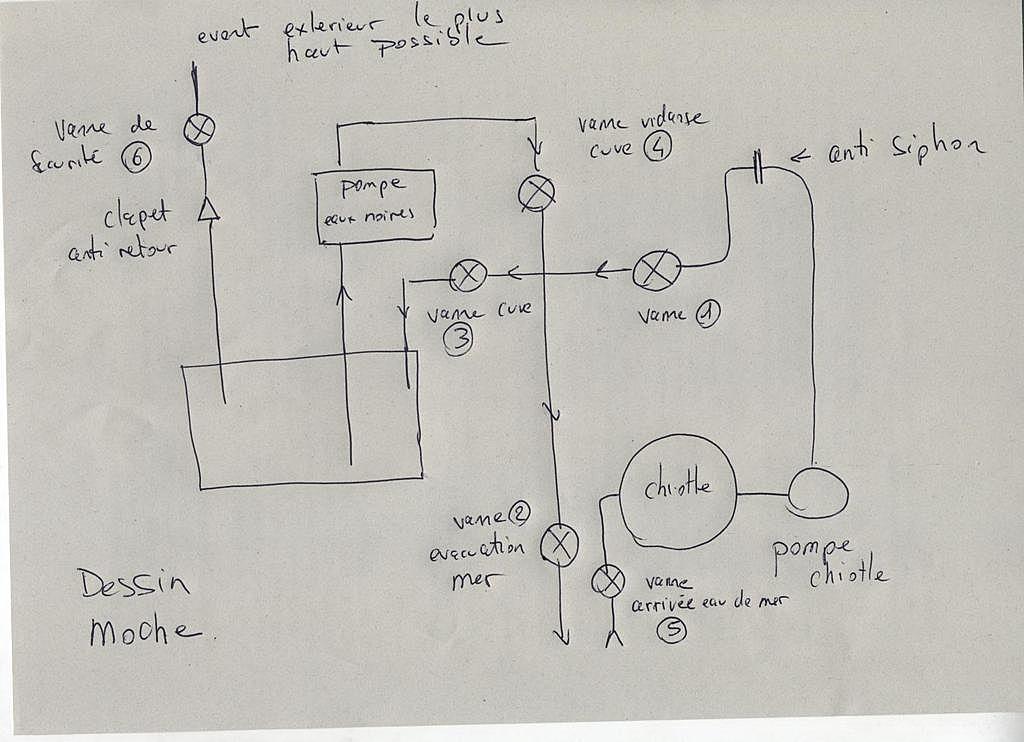 event exterieur le plus
haut possible
vanne de
Securité ⑥
clapet
anti retour
pompe
eaux noires
vanne vidange
cuve ④
← anti siphon
vanne cuve
③
vanne ①
chiotte
vanne ②
evacuation
mer
vanne
arrivée eau de mer
⑤
pompe
chiotte
Dessin
moche.